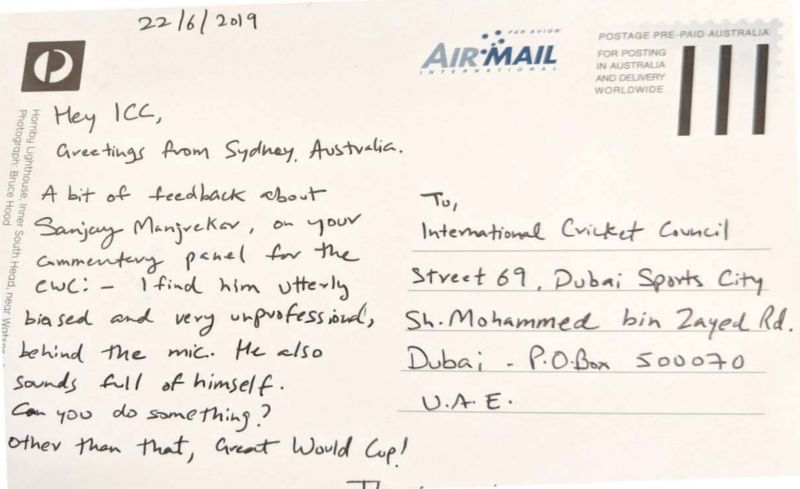 22/6/2019
PAR AVION
AIR MAIL
INTERNATIONAL
POSTAGE PRE-PAID AUSTRALIA
FOR POSTING
IN AUSTRALIA
AND DELIVERY
WORLDWIDE
Hornby Lighthouse, Inner South Head, near
Photograph: Bruce Hood
Hey ICC,
Greetings from Sydney, Australia.
A bit of feedback about
Sanjay Manjrekar, on your
commentary panel for the
CWC: - I find him utterly
biased and very unprofessional,
behind the mic. He also
sounds full of himself.
Can you do something?
Other than that, Great Would Cup!
To,
International Cricket Council
Street 69, Dubai Sports City
Sh. Mohammed bin Zayed Rd.
Dubai - P.O.Box 500070
U.A.E.